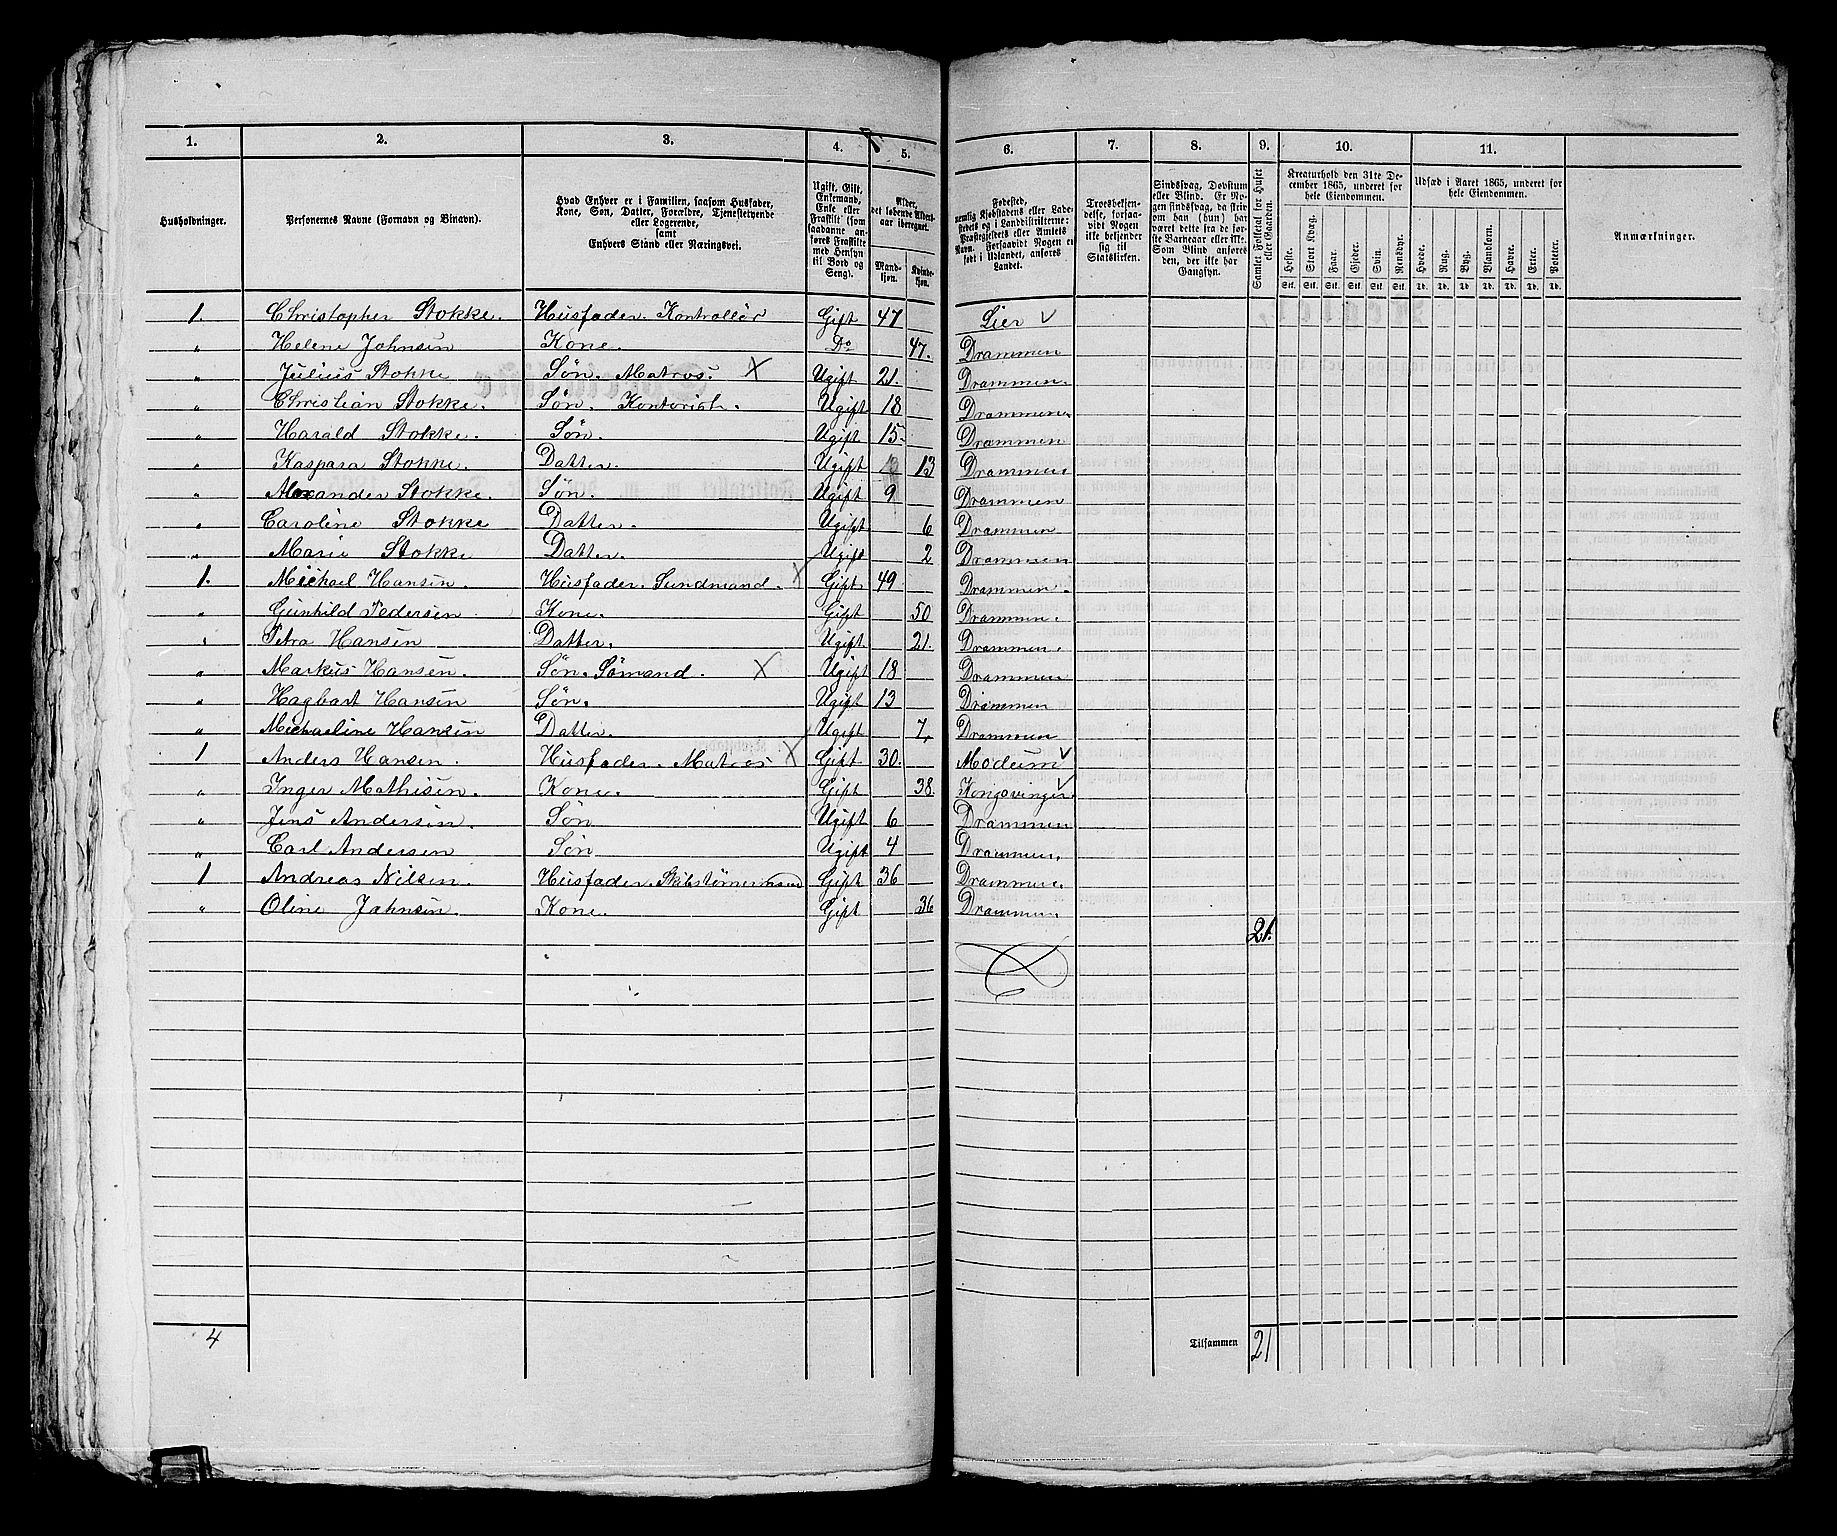 1. 2. 3. 4. 5. 6. 7. 8. 9. 10. 11.
Husholdninger.
Personernes Navne (Fornavn og Binavn).
Hvad Enhver er i Familien, saasom Husfader,
Kone, Søn, Datter, Forældre, Tjenestetyende
eller Logerende,
samt
Enhvers Stand eller Næringsvei.
Ugift, Gift,
Enkemand,
Enke eller
Fraskilt (som
saadanne an-
føres Fraskilte
med Hensyn
til Bord og
Seng).
Alder,
det løbende Alders-
aar iberegnet.
Mand-
kjøn.
Kvinde-
kjøn.
Fødested,
nemlig Kjøbstadens eller Lade-
stedets og i Landdistrikterne:
Præstegjeldets eller Amtets
Navn. Forsaavidt Nogen er
født i Udlandet, anføres
Landet.
Troesbekjen-
delse, forsaa-
vidt Nogen
ikke bekjender
sig til
Statskirken.
Sindssvag, Døvstum
eller Blind. Er No-
gen sindssvag, da skriv
om han (hun) har
været dette fra de før-
ste Barneaar eller ikke.
Som Blind anføres
den, der ikke har
Gangsyn.
Samlet Folketal for Huset
eller Gaarden.
Kreaturhold den 31te De-
cember 1865, underet for
hele Eiendommen.
Heste. Stort Kvæg. Faar. Gjeder. Svin. Rensdyr.
Stk. Stk. Stk. Stk. Stk. Stk.
Udsæd i Aaret 1865, underet for
hele Eiendommen.
Hvede. Rug. Byg. Blandkorn. Havre. Erter. Poteter.
Td. Td. Td. Td. Td. Td. Td.
Anmærkninger.
1. Christopher Stokke. Husfader. Kontrollør Gift 47 Lier
" Helene Johnsen Kone. Do 47. Drammen
" Julius Stokke Søn. Matros. X Ugift 21. Drammen.
" Christian Stokke. Søn. Kontorist. Ugift 18 Drammen.
" Harald Stokke. Søn. Ugift 15 Drammen
" Kaspara Stokke. Datter. Ugift 13 Drammen.
" Alexander Stokke. Søn. Ugift 9 Drammen
" Caroline Stokke Datter. Ugift 6 Drammen
" Marie Stokke Datter. Ugift 2 Drammen
1. Michael Hansen. Husfader. Sundmand. X Gift 49 Drammen.
" Gunhild Pedersen Kone. Gift 50 Drammen.
" Petra Hansen Datter. Ugift 21. Drammen.
" Markus Hansen. Søn. Sømand. X Ugift 18 Drammen
" Hagbart Hansen Søn. Ugift 13 Drammen
" Michaeline Hansen Datter. Ugift 7. Drammen
1 Anders Hansen. Husfader. Matros X Gift 30. Modum
" Inger Mathisen. Kone. Gift 38. Kongsvinger.
" Jens Andersen. Søn Ugift 6 Drammen
" Carl Andersen Søn Ugift 4 Drammen.
1 Andreas Nilsen. Husfader. Skibstømermand Gift 36 Drammen.
" Oline Johnsen. Kone. Gift 36 Drammen.
21.
4 Tilsammen 21